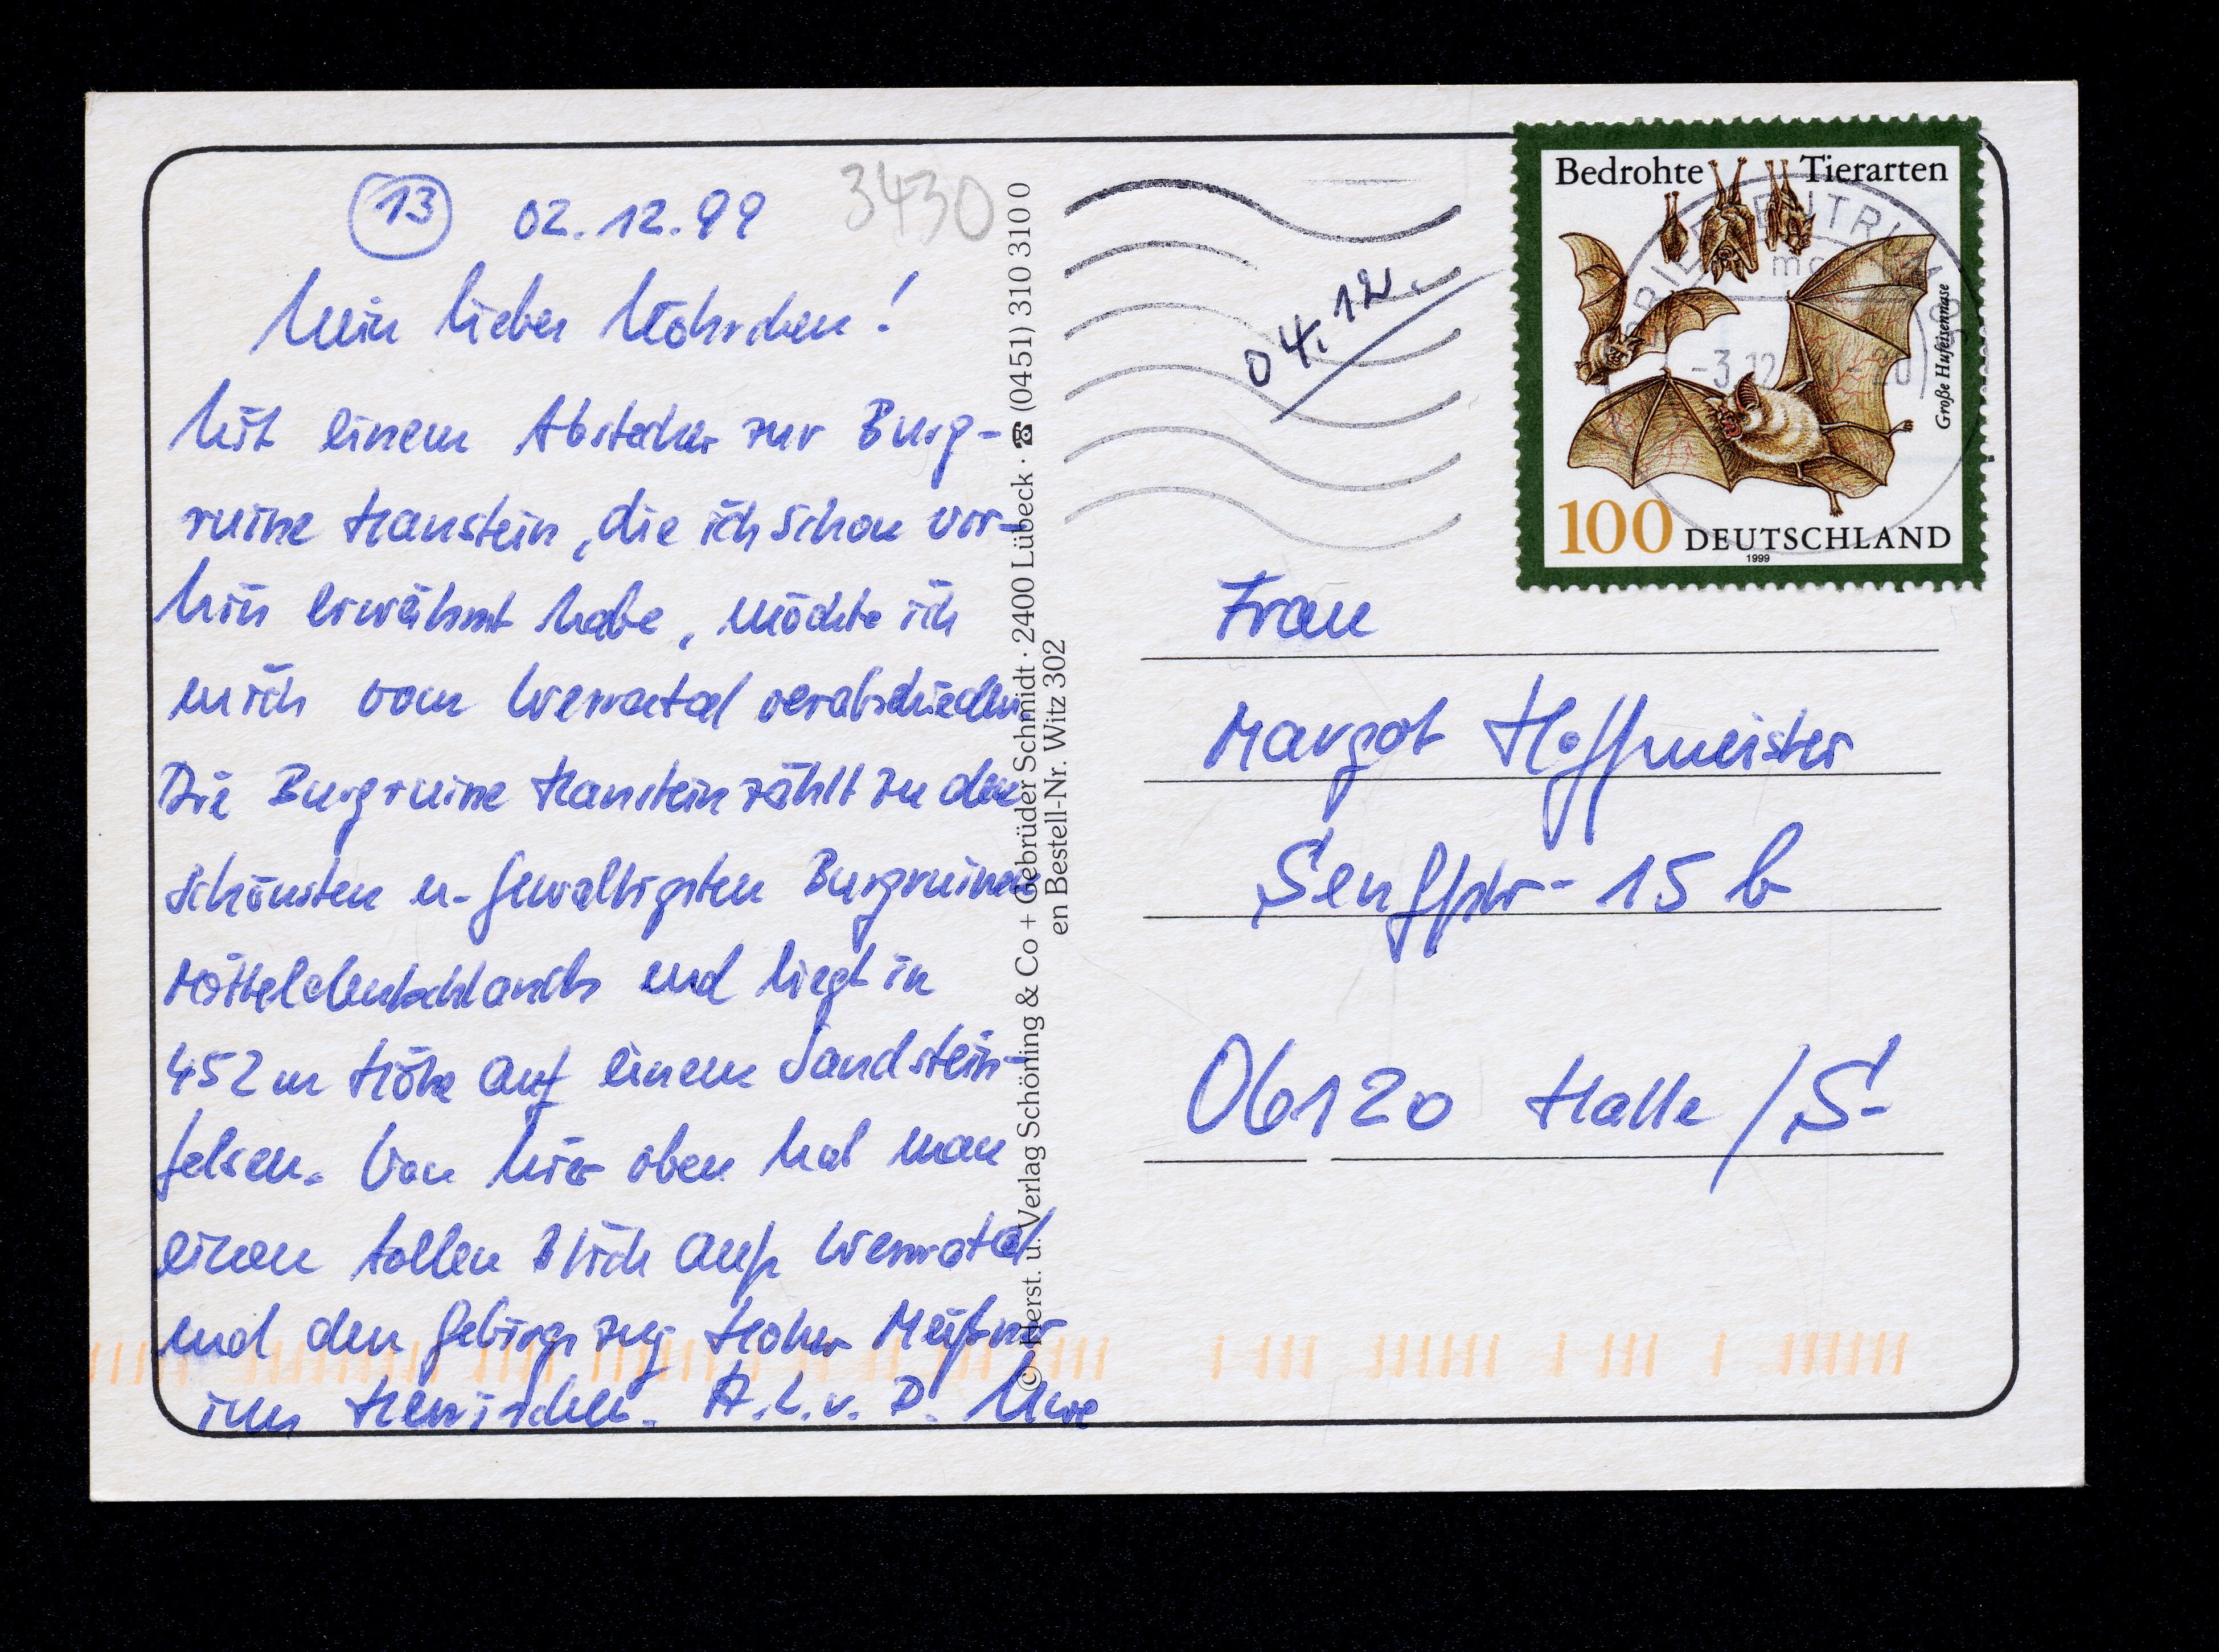 13 02.12.99
3430
Mein liebes Möhrchen!
Mit einem Abstecher zur Burg-
ruine Hanstein, die ich schon vor-
hin erwähnt habe, möchte ich
mich vom Werratal verabschieden.
Die Burgruine Hanstein zählt zu den
schönsten u. gewaltigsten Burgruinen
Mitteldeutschlands und liegt in
452 m Höhe auf einem Sandstein-
felsen. Von hier oben hat man
einen tollen Blick aufs Werratal
und den Gebirgszug Hoher Meißner
im Hessischen. A.L.v.D. Uwe
© Herst. u. Verlag Schöning & Co + Gebrüder Schmidt · 2400 Lübeck · ☎ (0451) 310 310 0
en Bestell-Nr. Witz 302
04.12.
Bedrohte Tierarten
Große Hufeisennase
100 DEUTSCHLAND
1999
-3.12
Frau
Margot Hoffmeister
Senffstr. 15 b
06120 Halle/S.